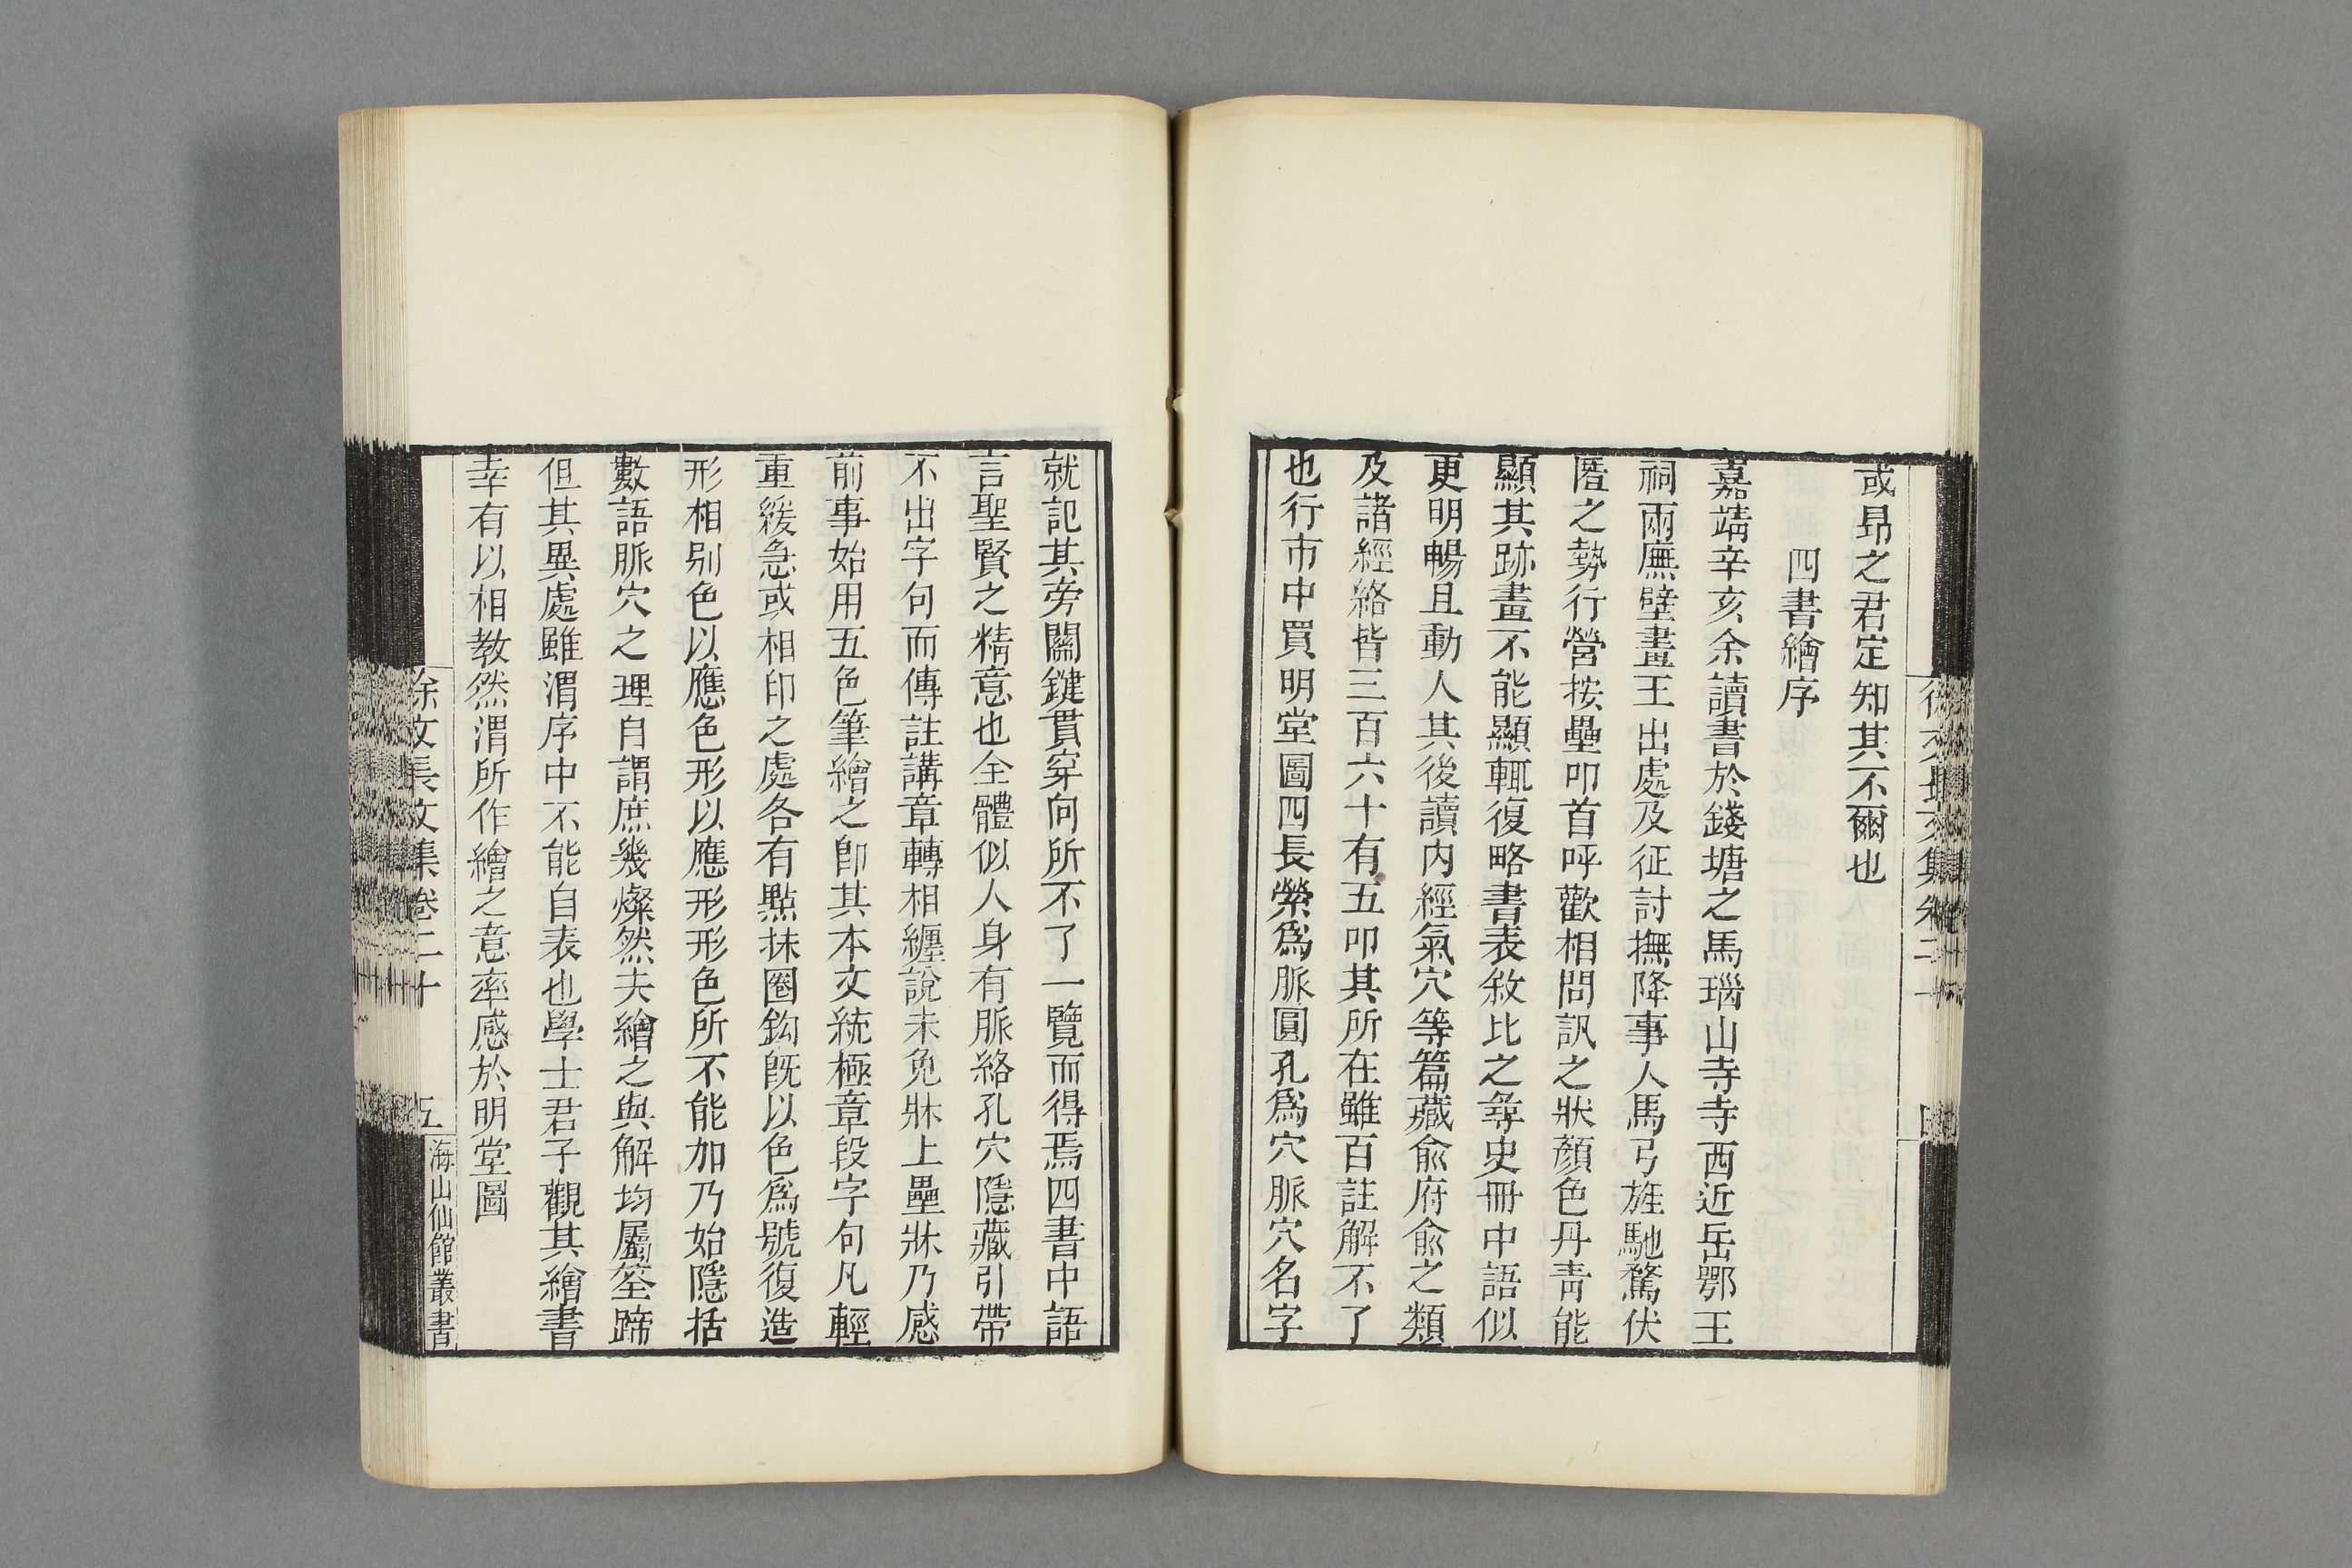 或昻之君定知其不爾也
四書繪序
嘉靖辛亥余讀書於錢塘之馬瑙山寺寺西近岳鄂王
祠兩廡壁畫王出處及征討撫降事人馬弓旌馳騖伏
匿之勢行營按壘叩首呼歡相問訊之狀顏色丹靑能
顯其跡畫不能顯輒復略書表敘比之尋史冊中語似
更明暢且動人其後讀内經氣穴等篇藏兪府兪之類
及諸經絡皆三百六十有五叩其所在雖百註解不了
也行市中買明堂圖四長縈爲脈圓孔爲穴脈穴名字
就記其旁關鍵貫穿向所不了一覽而得焉四書中語
言聖賢之精意也全體似人身有脈絡孔穴隱藏引帶
不出字句而傳註講章轉相纏說未免牀上壘牀乃感
前事始用五色筆繪之卽其本文統極章段字句凡輕
重緩急或相印之處各有點抹圈鈎旣以色爲號復造
形相别色以應色形以應形形色所不能加乃始隱括
數語脈穴之理自謂庶幾燦然夫繪之與解均屬筌蹄
但其異處雖渭序中不能自表也學士君子觀其繪書
幸有以相教然渭所作繪之意率感於明堂圖
徐文長文集卷二十
五
海山仙館叢書